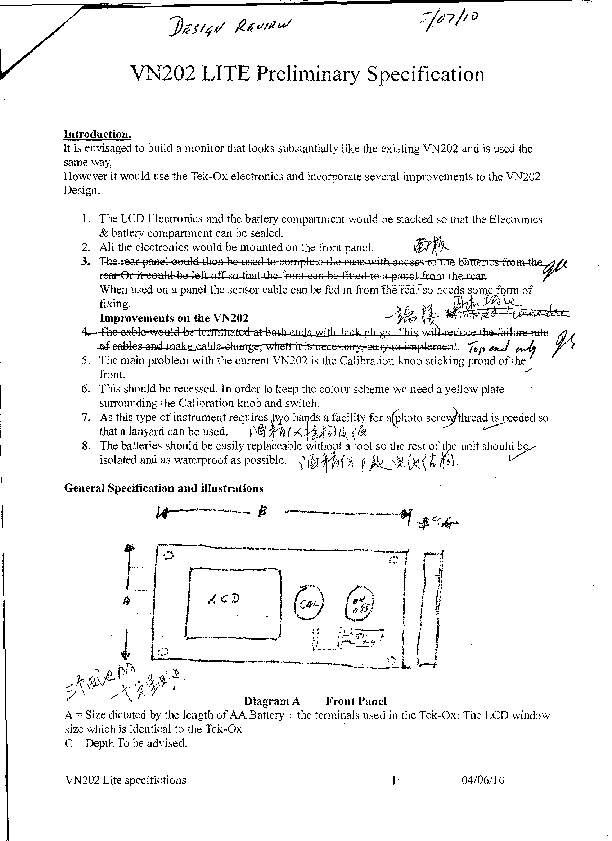 DESIGN REVIEW
VN202 LITE Preliminary Specification
Introduction.
It is envisaged to build a monitor that looks substantially like the existing VN202 and is used the
same way.
However it would use the Tek-Ox electronics and incorporate several improvements to the VN202
Design.
1. The LCD Electronics and the battery compartment would be stacked so that the Electronics
& battery compartment can be sealed.
2. All the electronics would be mounted on the front panel.
3. The rear panel could then be used to complete the case with access to the batteries from the
rear Or it could be left off so that the front can be fitted to a panel from the rear.
When used on a panel the sensor cable can be fed in from the rear so needs some form of
fixing.
Improvements on the VN202
4. The cable would be terminated at both ends with Jack plugs. This will reduce the failure rate
of cables and make cable change, when it is necessary, easy to implement. Top end only
5. The main problem with the current VN202 is the Calibration knob sticking proud of the
front.
6. This should be recessed. In order to keep the colour scheme we need a yellow plate
surrounding the Calibration knob and switch.
7. As this type of instrument requires two hands a facility for a photo screw thread is needed so
that a lanyard can be used.
8. The batteries should be easily replaceable without a tool so the rest of the unit should be
isolated and as waterproof as possible.
General Specification and illustrations
B
A
LCD
CAL
Diagram A Front Panel
A = Size dictated by the length of AA Battery + the terminals used in the Tek-Ox: The LCD window
size which is identical to the Tek-Ox
C Depth To be advised.
VN202 Lite specifictions
04/06/10